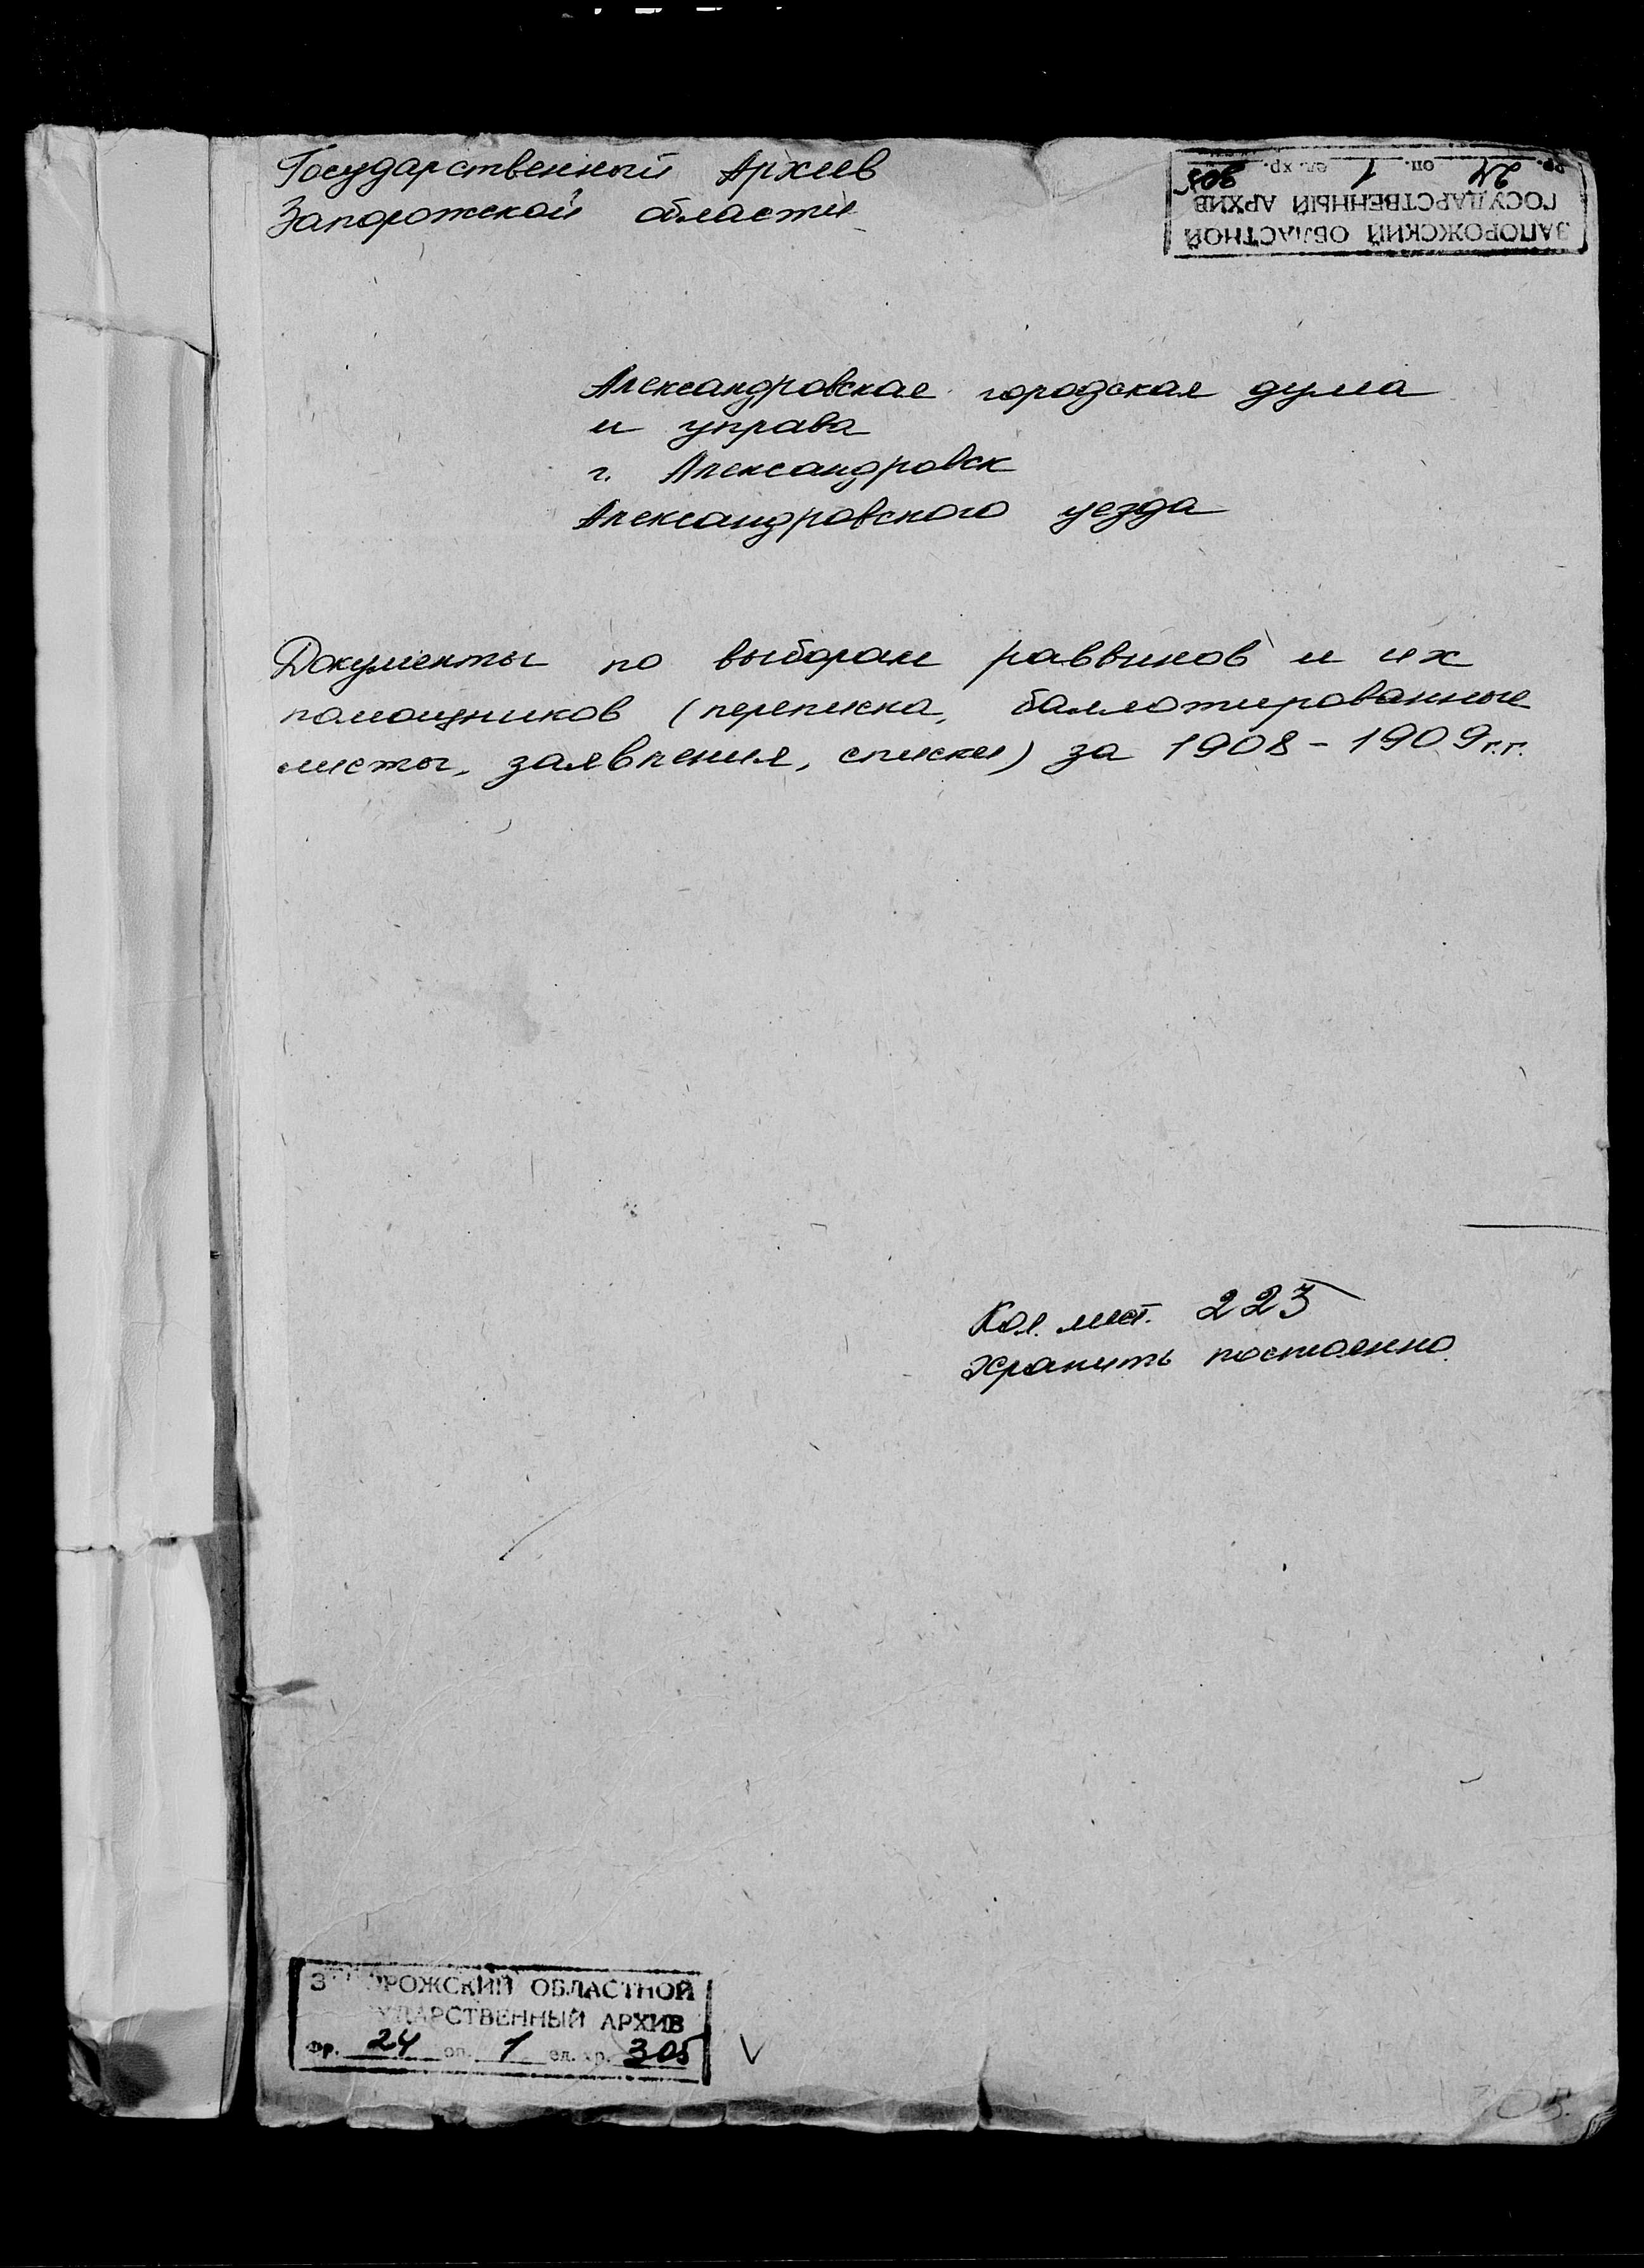 Государственный Архив
Запорожской области
ЗАПОРОЖСКИЙ ОБЛАСТНОЙ
ГОСУДАРСТВЕННЫЙ АРХИВ
Фр. 24 оп. 1 ед. хр. 305
Александровская городская дума
и управа
г. Александровск
Александровского уезда
Документы по выборам раввинов и их
помощников (переписка, баллотированные
листы, заявления, списки) за 1908-1909 г.г.
Кол. лист. 223
Хранить постоянно
ЗАПОРОЖСКИЙ ОБЛАСТНОЙ
ГОСУДАРСТВЕННЫЙ АРХИВ
Фр. 24 оп. 1 ед. хр. 305
305.